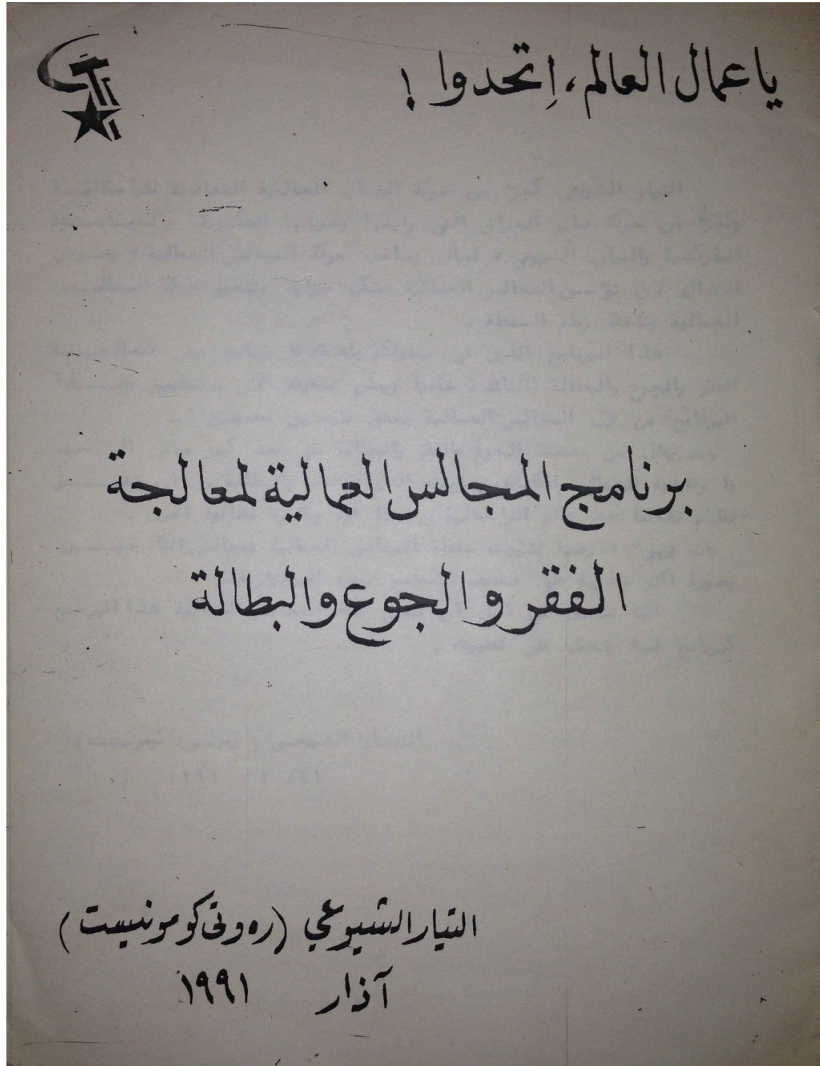 يا عمال العالم، إتحدوا !
برنامج المجالس العمالية لمعالجة
الفقر والجوع والبطالة
التيار الشيوعي (رەوتی كومونيست)
آذار ١٩٩١